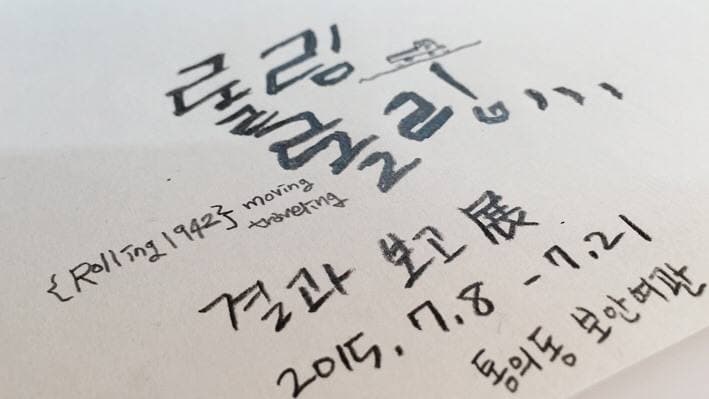 롤링
롤링,,,,
{Rolling 1942} moving
traveling
결과 보고 展
2015. 7. 8 - 7. 21
통의동 보안여관